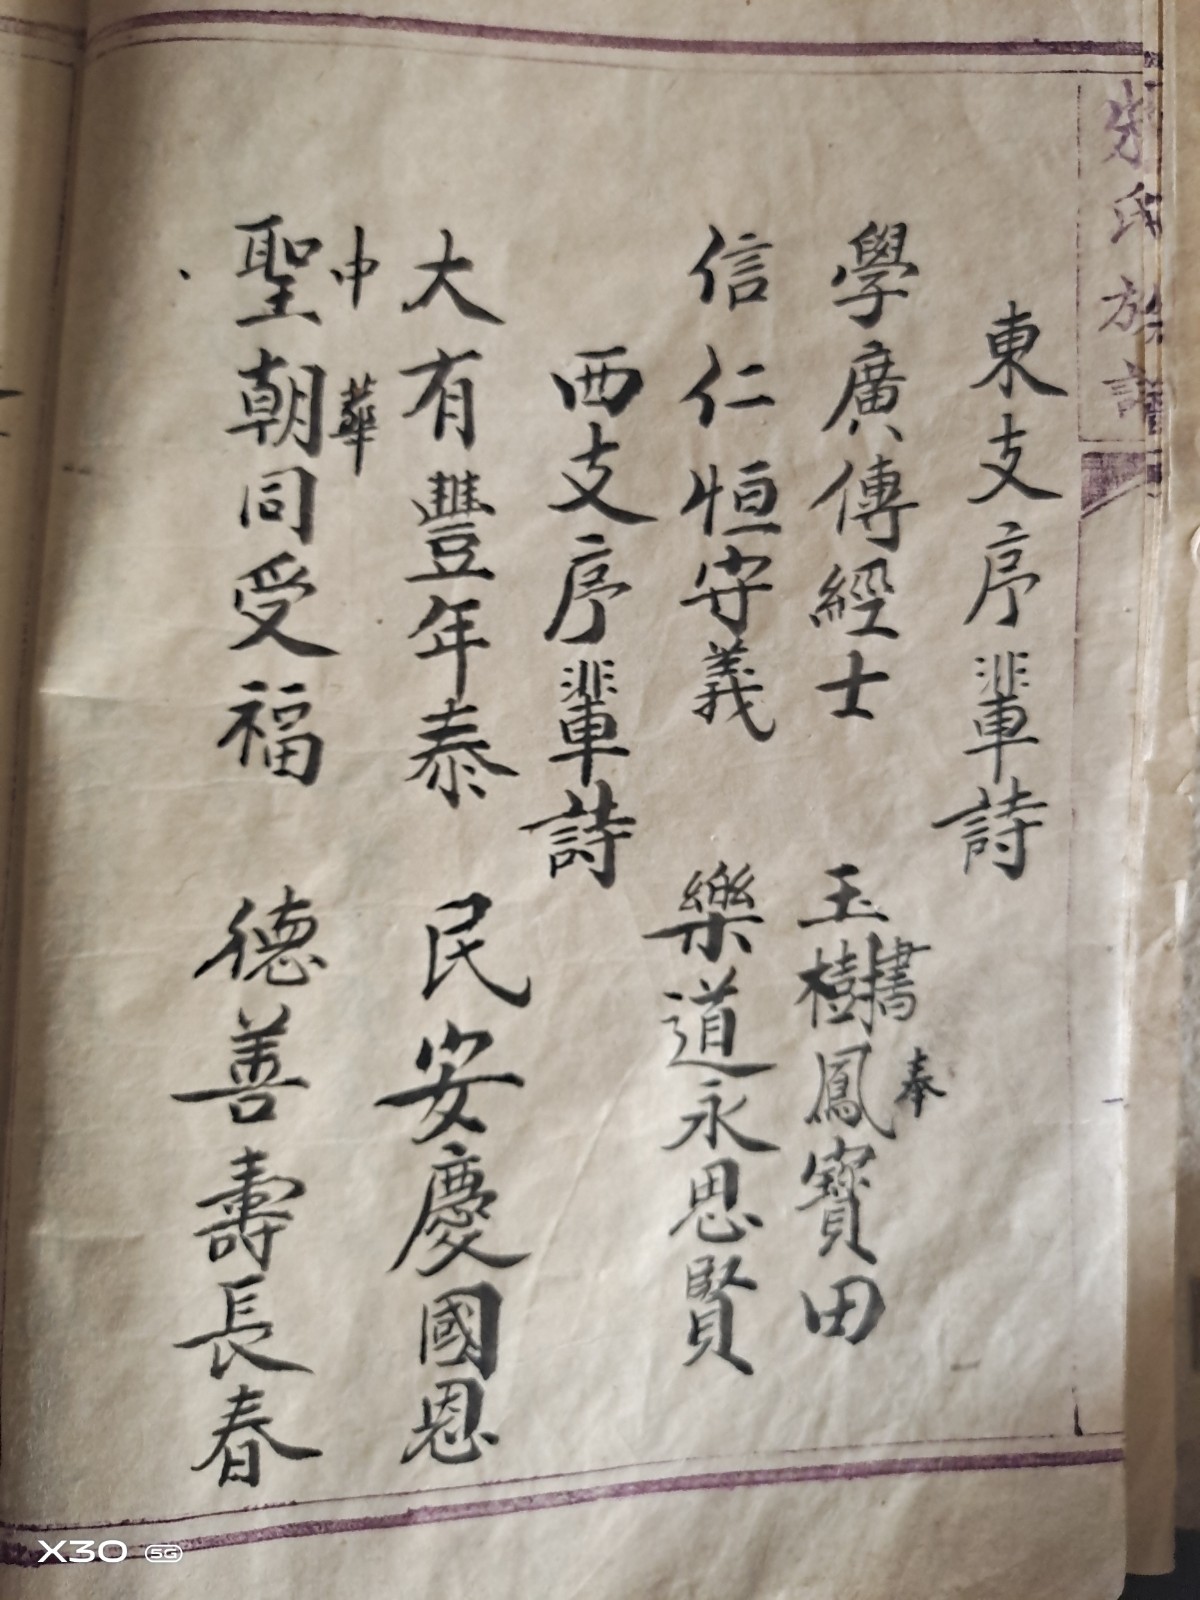 宋氏族譜
東支序輩詩
學廣傳經士 玉樹鳳寶田
書 奉
信仁恒守義 樂道永思賢
西支序輩詩
大有豐年泰 民安慶國恩
中華
聖朝同受福 德善壽長春
X30 5G